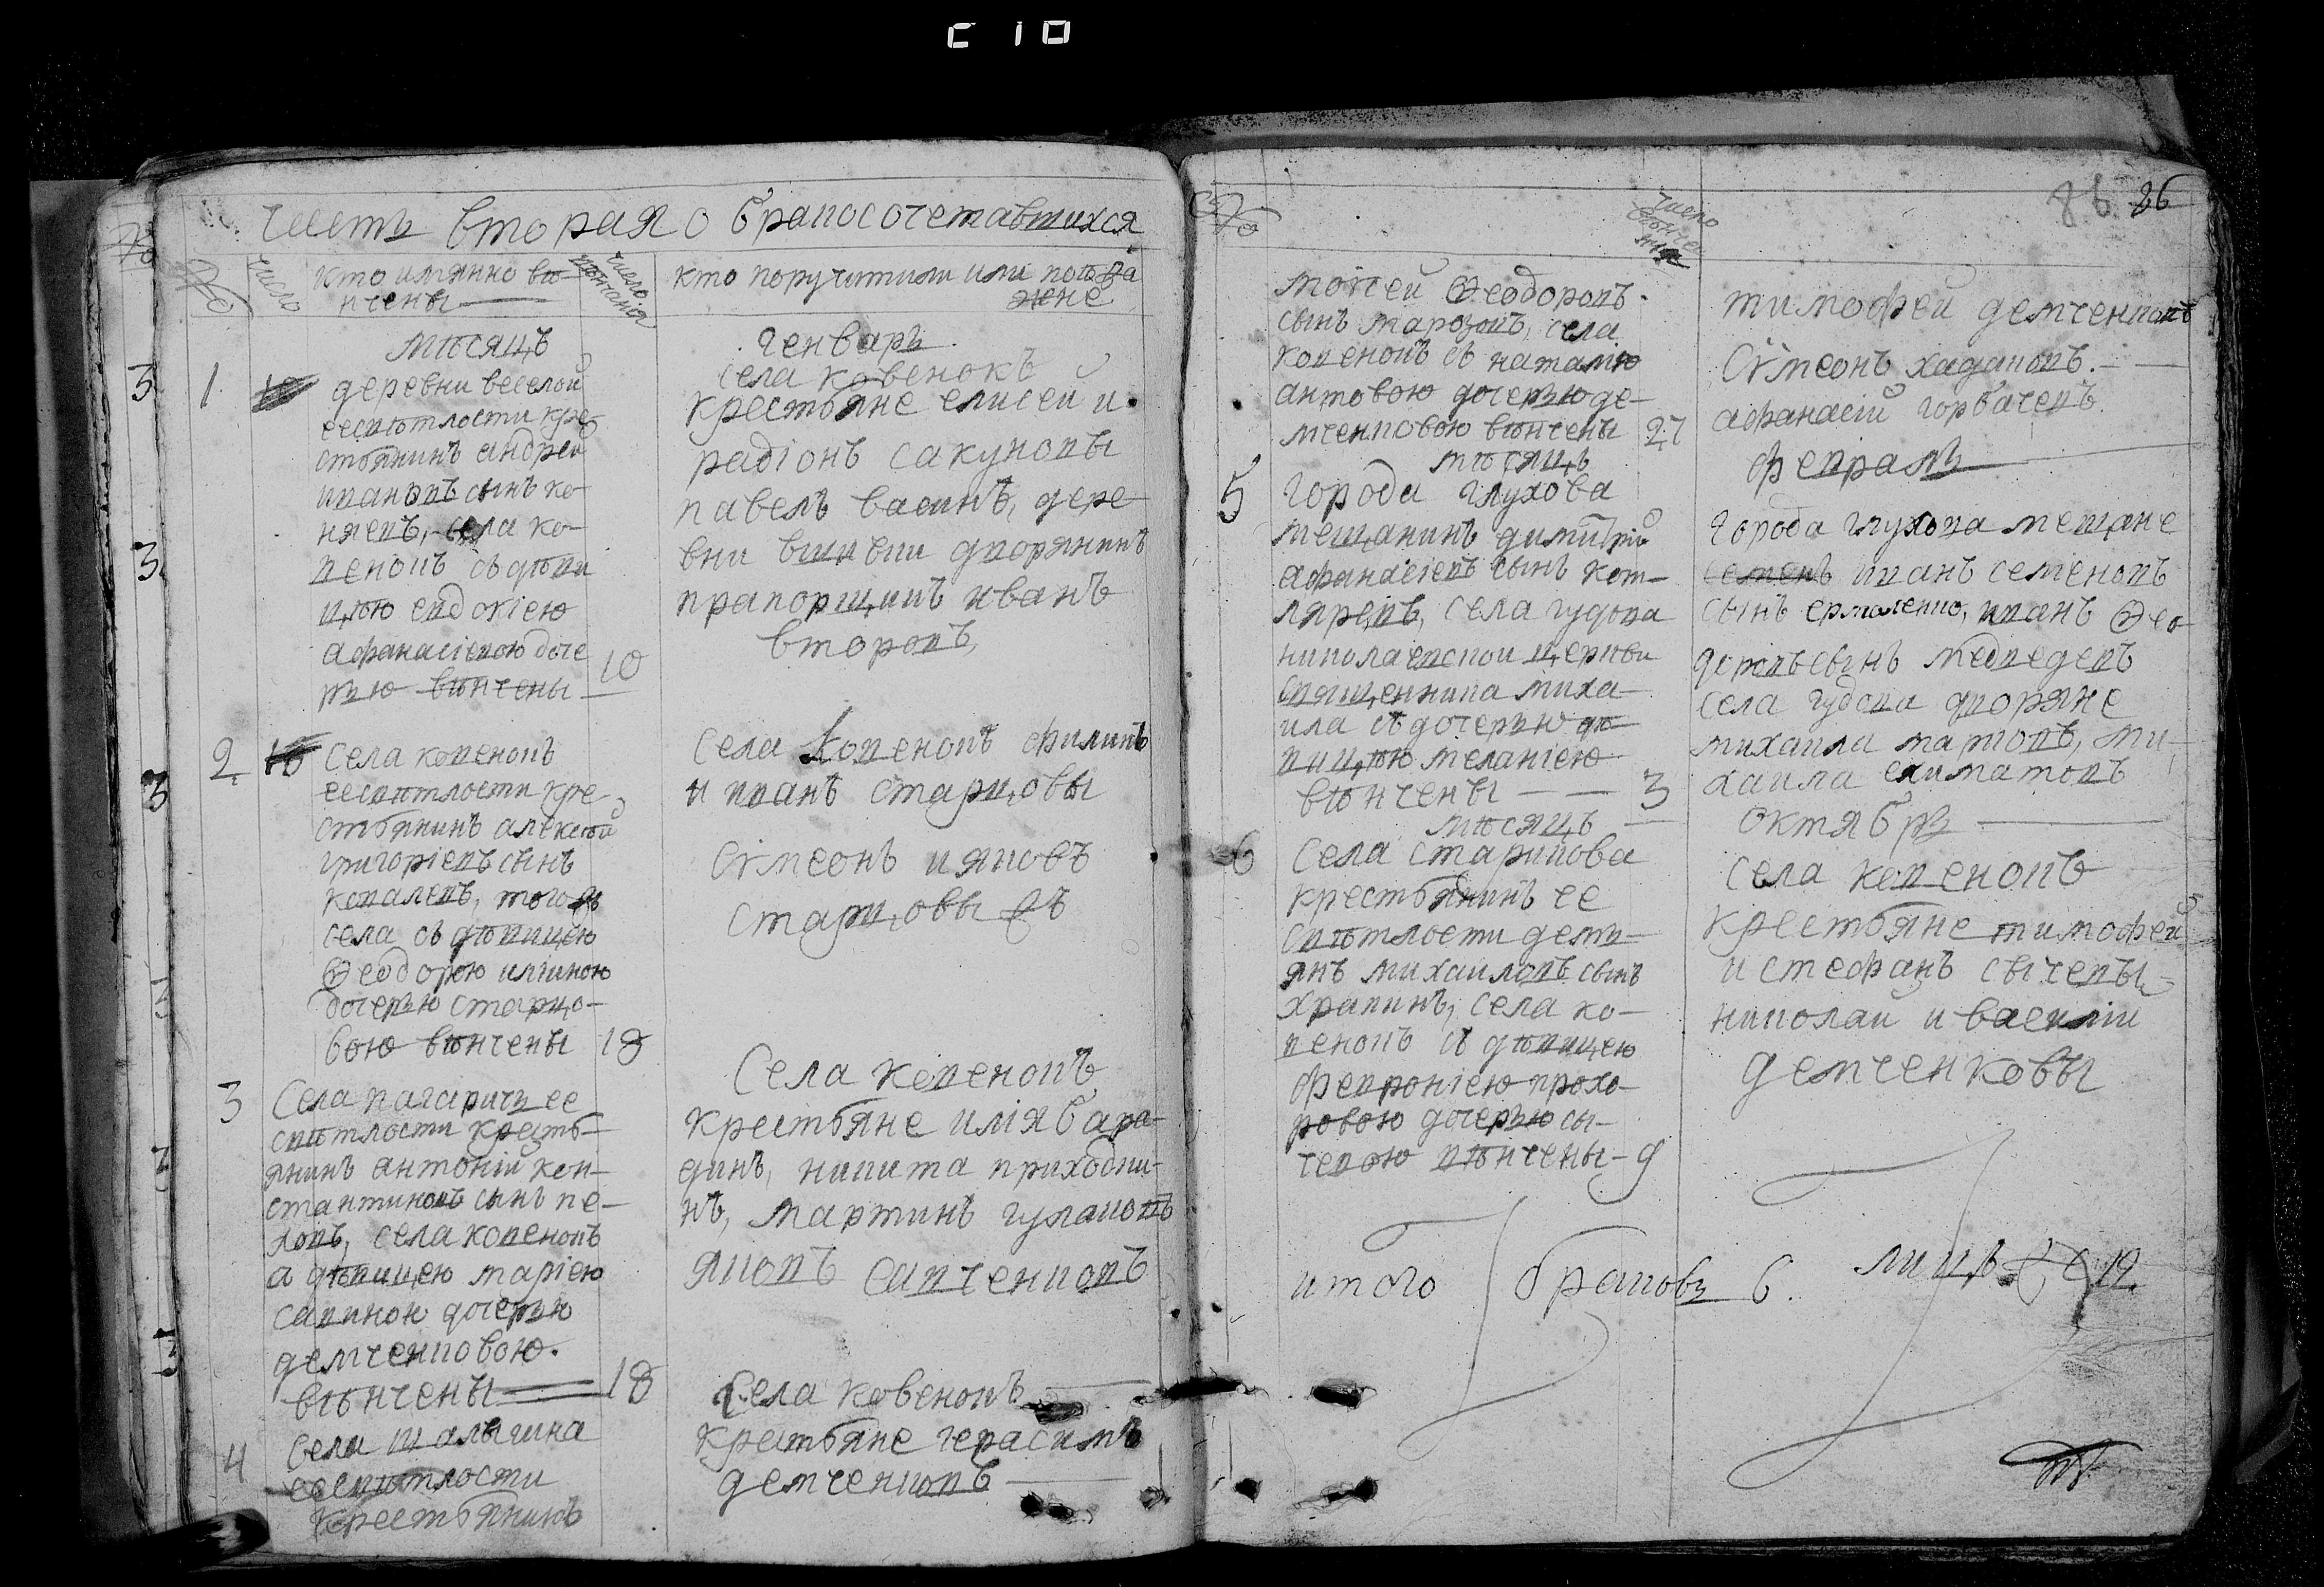 C 10
Честь вторая о бракосочетавшихся
№
число
кто имянно вѣ-
нчены
число
вѣнчанія
кто поручители или поѣзжа
жене
мѣсяцъ
генварь
3
1
10
деревни веселой
ее свѣтлости кре-
стьянинъ андрей
ивановъ сынъ ко-
няевъ, села ко-
венокъ съ дѣви
цею евдокіею
афанасіевою доче
рью вѣнчены
10
села ковенокъ
крестьяне елисей и
радіонъ сакуновы
павелъ васинъ, дере-
вни дворянинъ
прапорщикъ иванъ
второвъ
3
2
10
села ковенокъ
ее свѣтлости кре-
стьянинъ алексѣй
григоріевъ сынъ
ковалевъ, того жъ
села съ дѣвицею
Ѳеодорою иліиною
дочерью старцо-
вою вѣнчены
18
Села ковенокъ филипъ
и иванъ старцовы
Сѵмеонъ и яковъ
старцовы жъ
3
3
Села ее
свѣтлости кресть-
янинъ антоній кон-
стантиновъ сынъ пе-
ховъ, села ковенокъ
з дѣвицею маріею
савиною дочерью
демченковою
вѣнчены
18
Села ковенокъ
крестьяне илія бара-
динъ, никита приходки-
нъ, мартинъ гулаковъ
яковъ савченковъ
4
Села шалыгина
ее свѣтлости
крестьянинъ
Села ковенокъ
крестьяне герасимъ
демченковъ
№
число
вѣнче
нія
86
86
моѵсей Ѳеодоровъ
сынъ марозовъ, села
ковенокъ съ наталію
антовою дочерью де-
мченковою вѣнчены
27
тимофей демченковъ
Сѵмеонъ хадановъ.
афанасій горбачевъ
мѣсяцъ
февраль
5
города глухова
мещанинъ димитрій
афанасіевъ сынъ кот-
ляревъ, села гудова
николаевской церкви
священника миха-
ила съ дочерью дѣ-
вицею меланіею
вѣнчены
3
города глухова мещане
семенъ иванъ семеновъ
сынъ ермоленко, иванъ Ѳео-
доровъ сынъ медведевъ
села гудова дворяне
михаила марковъ, ми-
хаила
мѣсяцъ
октябрь
6
Села старикова
крестьянинъ ее
свѣтлости демь-
янъ михаиловъ сынъ
храпинъ, села ко-
венокъ съ дѣвицею
февроніею прохо-
ровою дочерью сы-
чевою вѣнчены
9
села ковенокъ
крестьяне тимофей
и стефанъ сычевы
николай и василій
демченковы
итого браковъ 6. лицъ 12